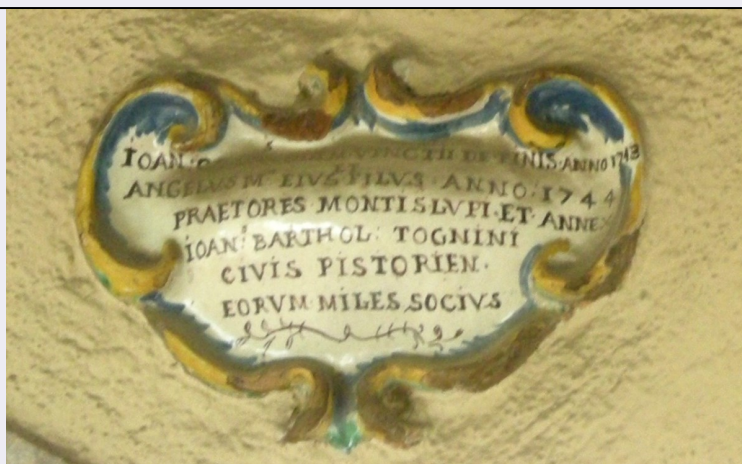 IOAN· VINCTII DE TINIS·ANNO 1743
ANGELVS M· EIVS FILVS · ANNO · 1744
PRAETORES · MONTISLVPI · ET · ANNEX
IOAN: BARTHOL: TOGNINI
CIVIS PISTORIEN·
EORVM · MILES SOCIVS